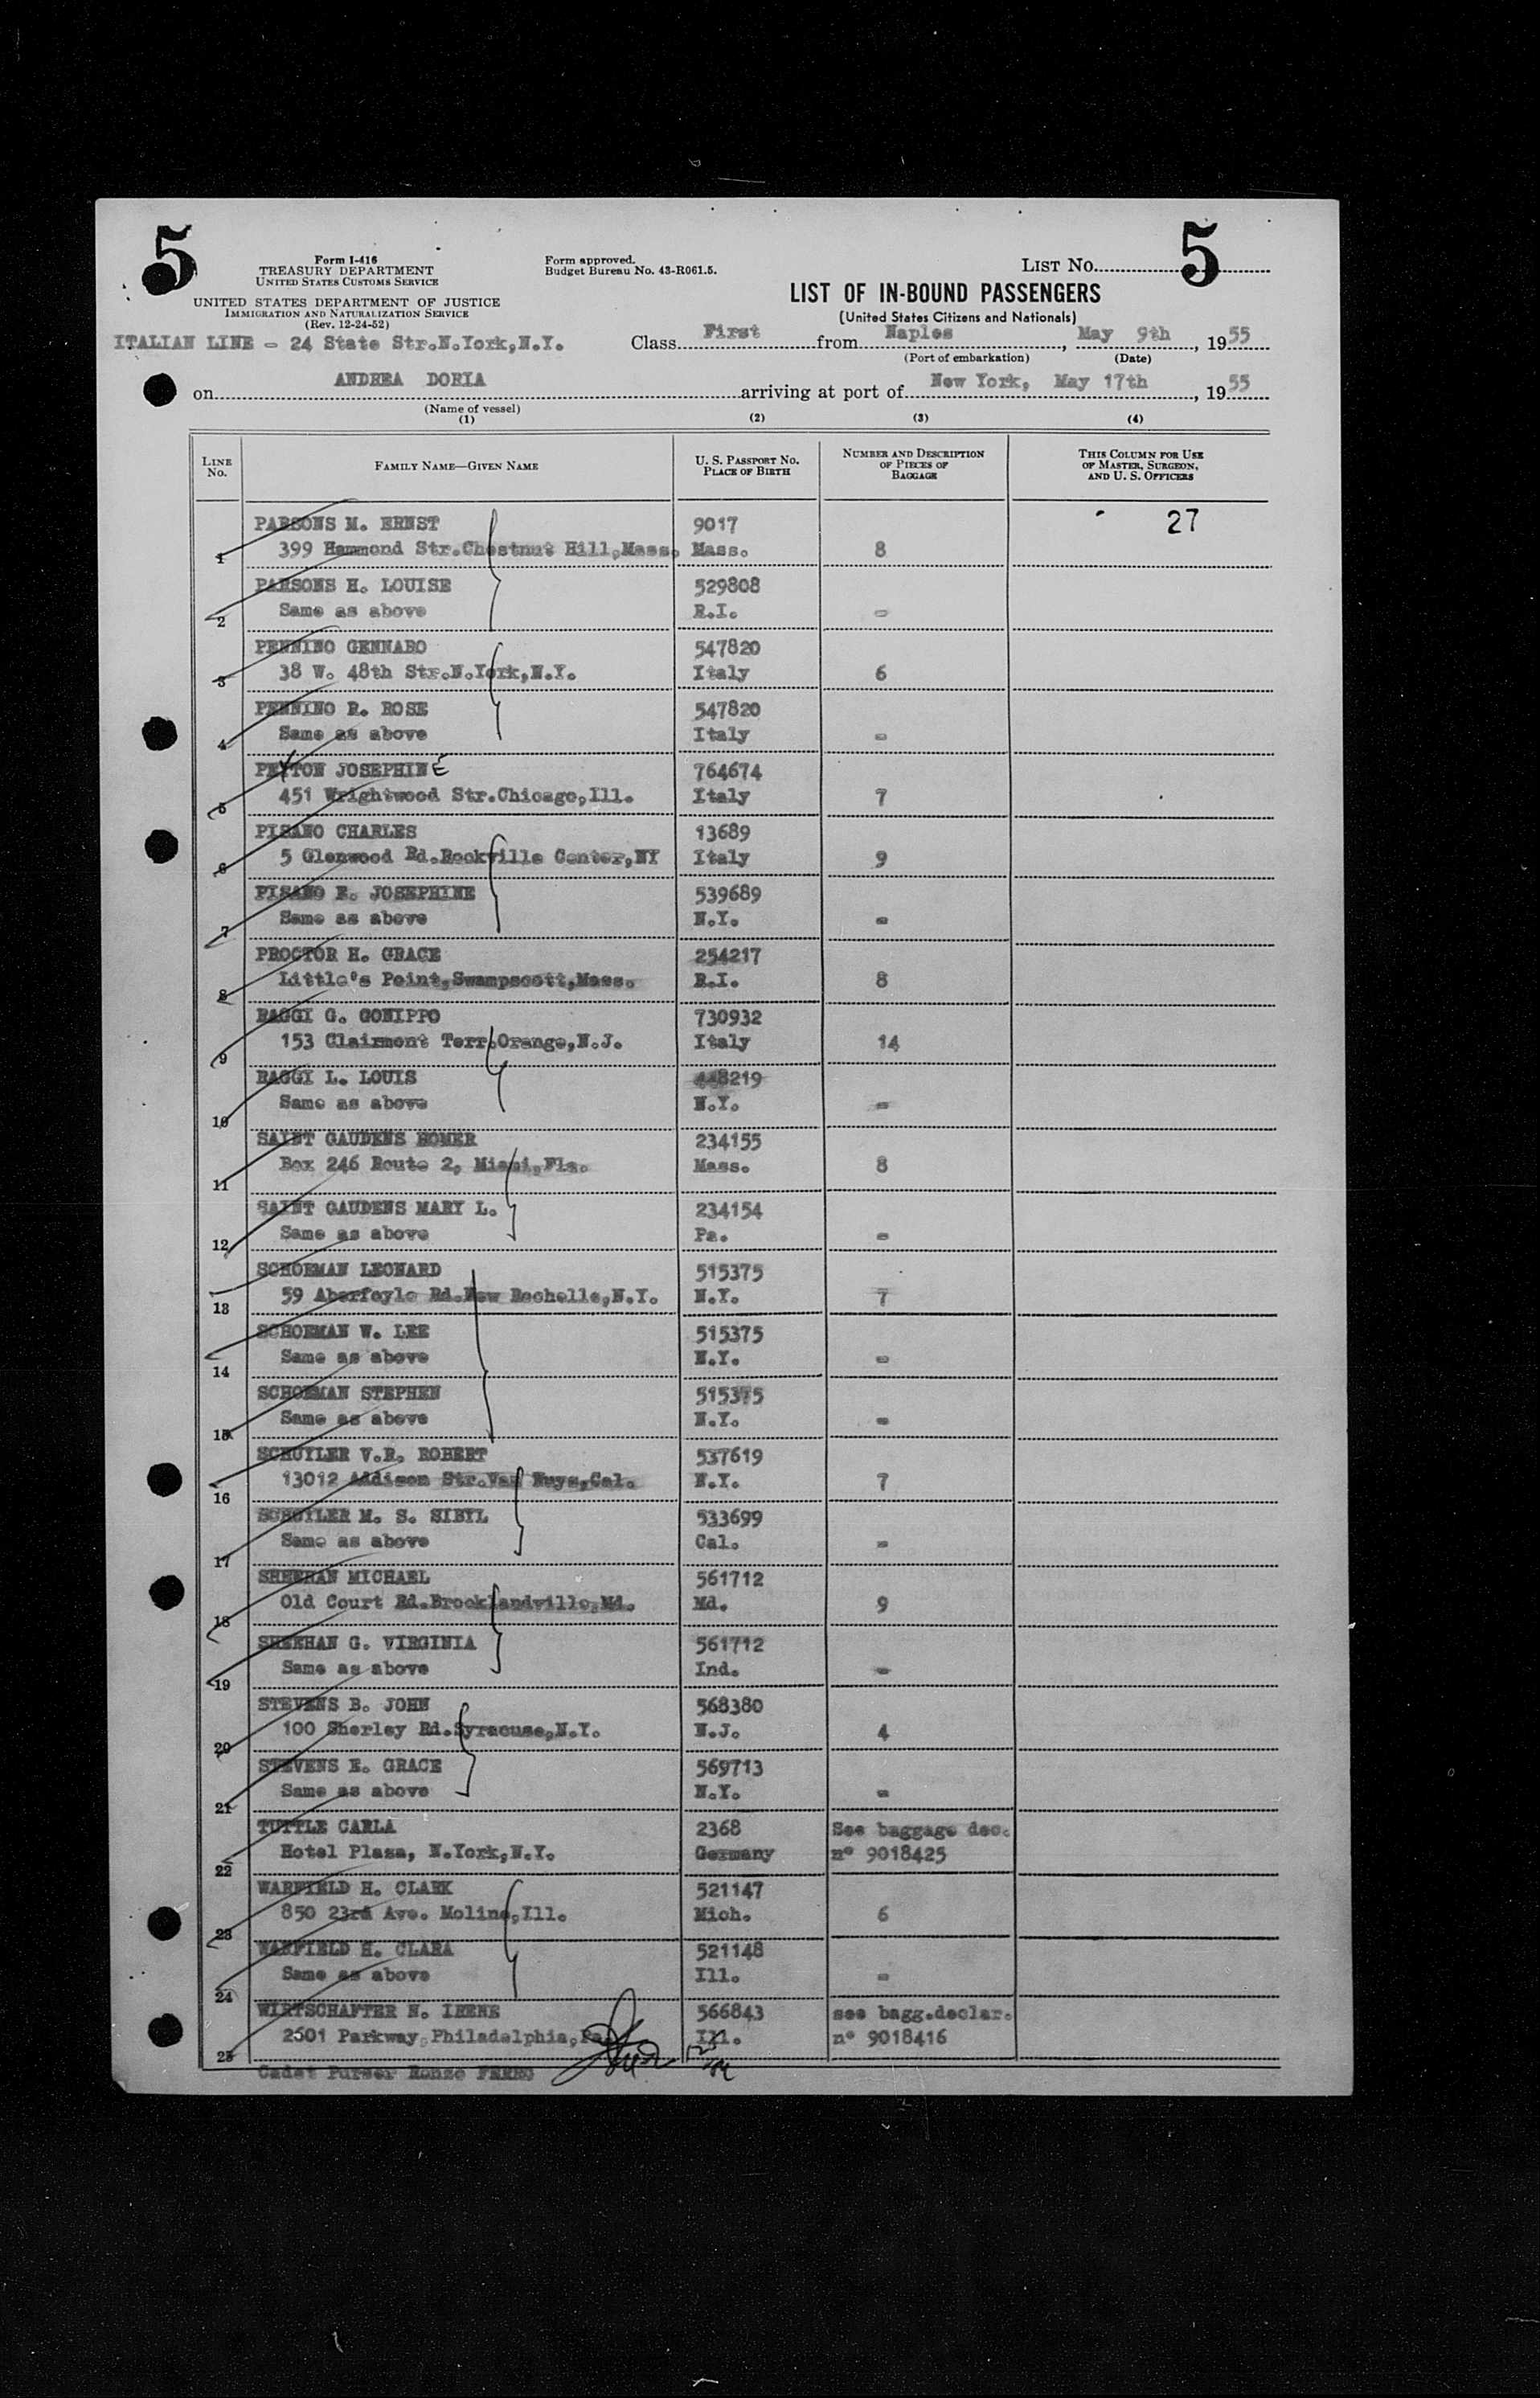 5
5
Form I-416
TREASURY DEPARTMENT
UNITED STATES CUSTOMS SERVICE
UNITED STATES DEPARTMENT OF JUSTICE
IMMIGRATION AND NATURALIZATION SERVICE
(Rev. 12-24-52)
Form approved.
Budget Bureau No. 43-R061.5.
LIST NO.
LIST OF IN-BOUND PASSENGERS
(United States Citizens and Nationals)
ITALIAN LINE - 24 State Str.N.York,N.Y. Class First from Naples, May 9th, 1955
(Port of embarkation) (Date)
on ANDREA DORIA arriving at port of New York, May 17th, 1955
(Name of vessel)
(1) (2) (3) (4)
LINE NO. FAMILY NAME—GIVEN NAME U. S. PASSPORT NO. PLACE OF BIRTH NUMBER AND DESCRIPTION OF PIECES OF BAGGAGE THIS COLUMN FOR USE OF MASTER, SURGEON, AND U. S. OFFICERS
PARSONS M. ERNST 9017 27
1 399 Hammond Str.Chestnut Hill,Mass. Mass. 8
PARSONS H. LOUISE 529808
2 Same as above R.I. -
PENNINO GENNARO 547820
3 38 W. 48th Str.N.York,N.Y. Italy 6
PENNINO R. ROSE 547820
4 Same as above Italy -
PEYTON JOSEPHINE 764674
5 451 Wrightwood Str.Chicago,Ill. Italy 7
PISANO CHARLES 13689
6 5 Glenwood Rd.Rockville Center,NY Italy 9
PISANO E. JOSEPHINE 539689
7 Same as above N.Y. -
PROCTOR H. GRACE 254217
8 Little's Point,Swampscott,Mass. R.I. 8
RAGGI G. GONIPPO 730932
9 153 Clairmont Terr.Orange,N.J. Italy 14
RAGGI L. LOUIS 448219
10 Same as above N.Y. -
SAINT GAUDENS HOMER 234155
11 Box 246 Route 2, Miami,Fla. Mass. 8
SAINT GAUDENS MARY L. 234154
12 Same as above Pa. -
SCHOEMAN LEONARD 515375
13 59 Aberfoyle Rd.New Rochelle,N.Y. N.Y. 7
SCHOEMAN W. LEE 515375
14 Same as above N.Y. -
SCHOEMAN STEPHEN 515375
15 Same as above N.Y. -
SCHUYLER V.R. ROBERT 537619
16 13012 Addison Str.Van Nuys,Cal. N.Y. 7
SCHUYLER M. S. SIBYL 533699
17 Same as above Cal. -
SHEEHAN MICHAEL 561712
18 Old Court Rd.Brooklandville,Md. Md. 9
SHEEHAN G. VIRGINIA 561712
19 Same as above Ind. -
STEVENS B. JOHN 568380
20 100 Sherley Rd.Syracuse,N.Y. N.J. 4
STEVENS E. GRACE 569713
21 Same as above N.Y. -
TUTTLE CARLA 2368 See baggage dec.
22 Hotel Plaza, N.York,N.Y. Germany n° 9018425
WARFIELD H. CLARK 521147
23 850 23rd Ave. Moline,Ill. Mich. 6
WARFIELD H. CLARA 521148
24 Same as above Ill. -
WIRTSCHAFTER N. IRENE 566843 see bagg.declar.
25 2601 Parkway,Philadelphia,Pa. Ill. n° 9018416
Cadet Purser Renzo FERRO